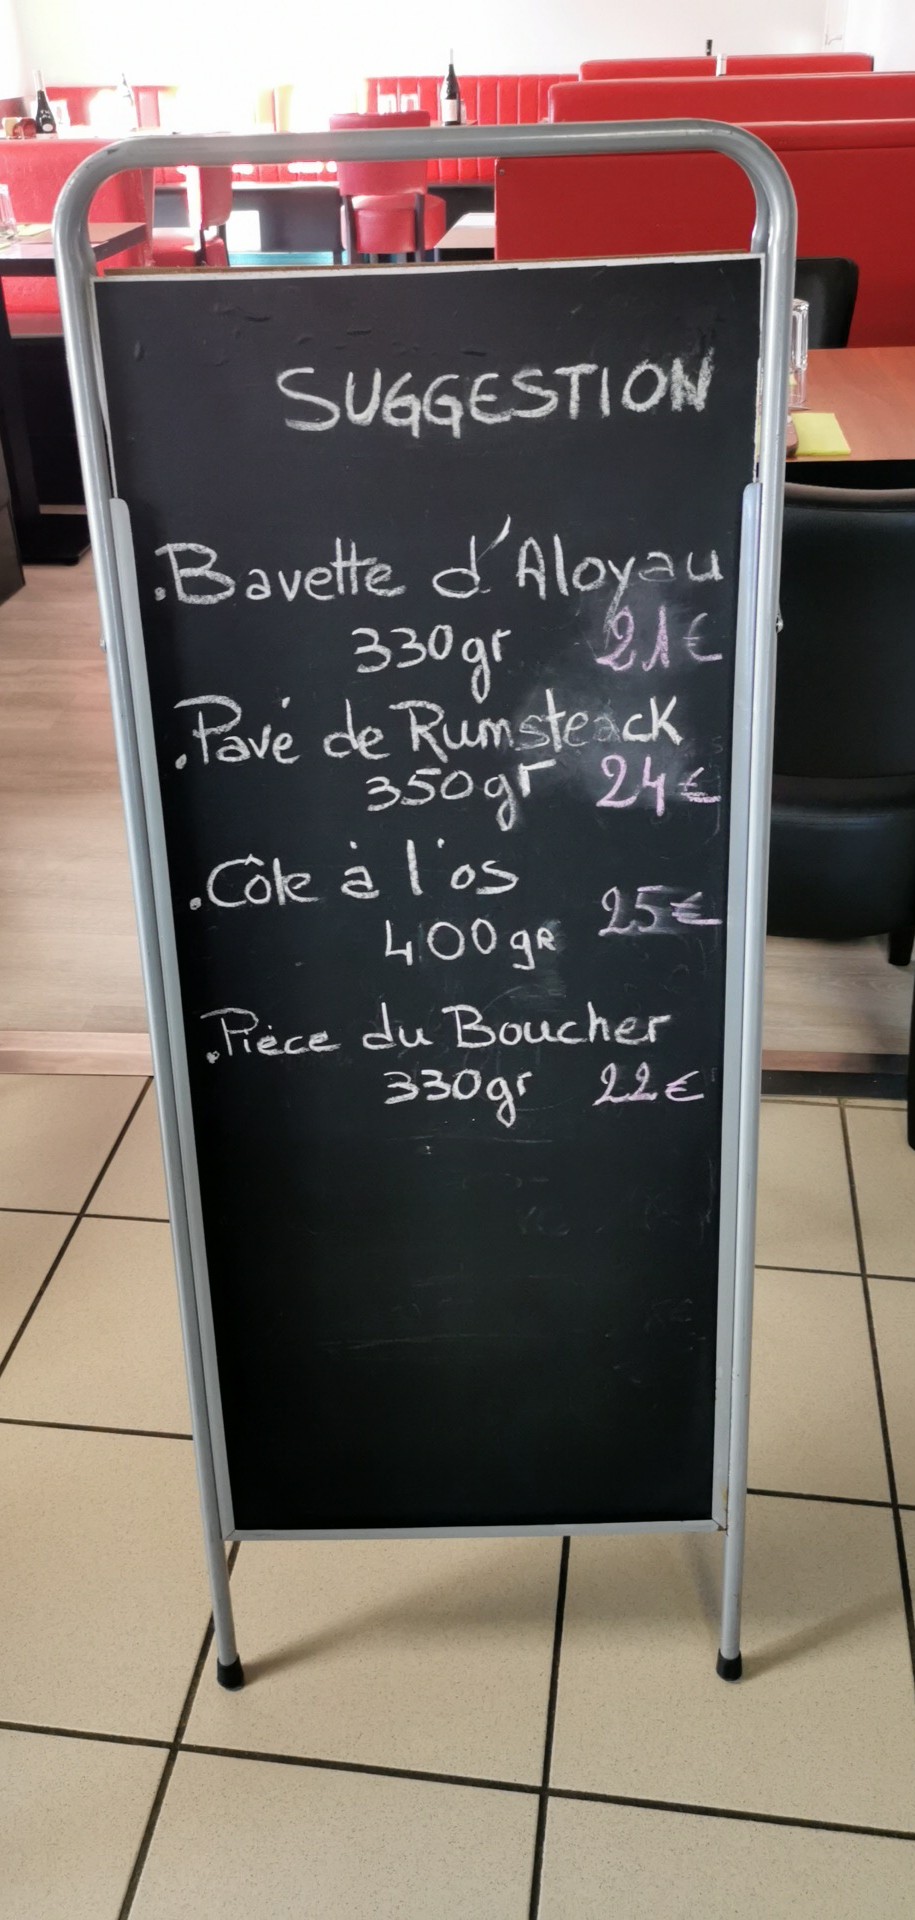 SUGGESTION
.Bavette d'Aloyau
330gr 21€
.Pavé de Rumsteack
350gr 24€
.Côte à l'os
25€
400gR
.Pièce du Boucher
330gr 22€